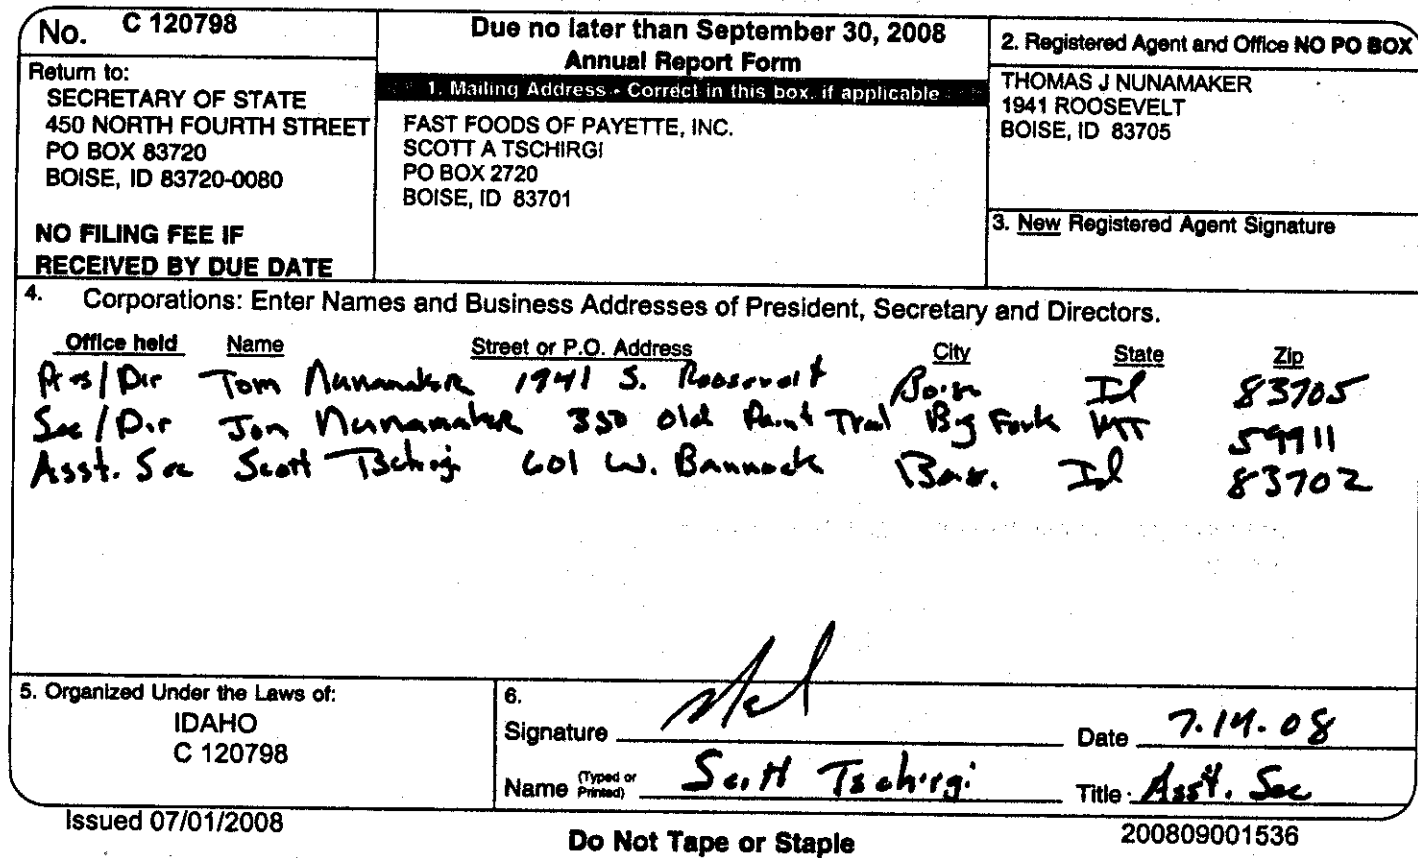 No. C 120798
Return to:
SECRETARY OF STATE
450 NORTH FOURTH STREET
PO BOX 83720
BOISE, ID 83720-0080
NO FILING FEE IF
RECEIVED BY DUE DATE
Due no later than September 30, 2008
Annual Report Form
1. Mailing Address - Correct in this box, if applicable
FAST FOODS OF PAYETTE, INC.
SCOTT A TSCHIRGI
PO BOX 2720
BOISE, ID 83701
2. Registered Agent and Office NO PO BOX
THOMAS J NUNAMAKER
1941 ROOSEVELT
BOISE, ID 83705
3. New Registered Agent Signature
4. Corporations: Enter Names and Business Addresses of President, Secretary and Directors.
Office held Name Street or P.O. Address City State Zip
Pres/Dir Tom Nunamaker 1941 S. Roosevelt Boise Id 83705
Sec/Dir Jon Nunamaker 350 Old Paint Trail Big Fork MT 59911
Asst. Sec Scott Tschirgi 601 W. Bannock Boise Id 83702
5. Organized Under the Laws of:
IDAHO
C 120798
6.
Signature Date 7.14.08
Name (Typed or Printed) Scott Tschirgi Title Asst. Sec
Issued 07/01/2008
Do Not Tape or Staple
200809001536